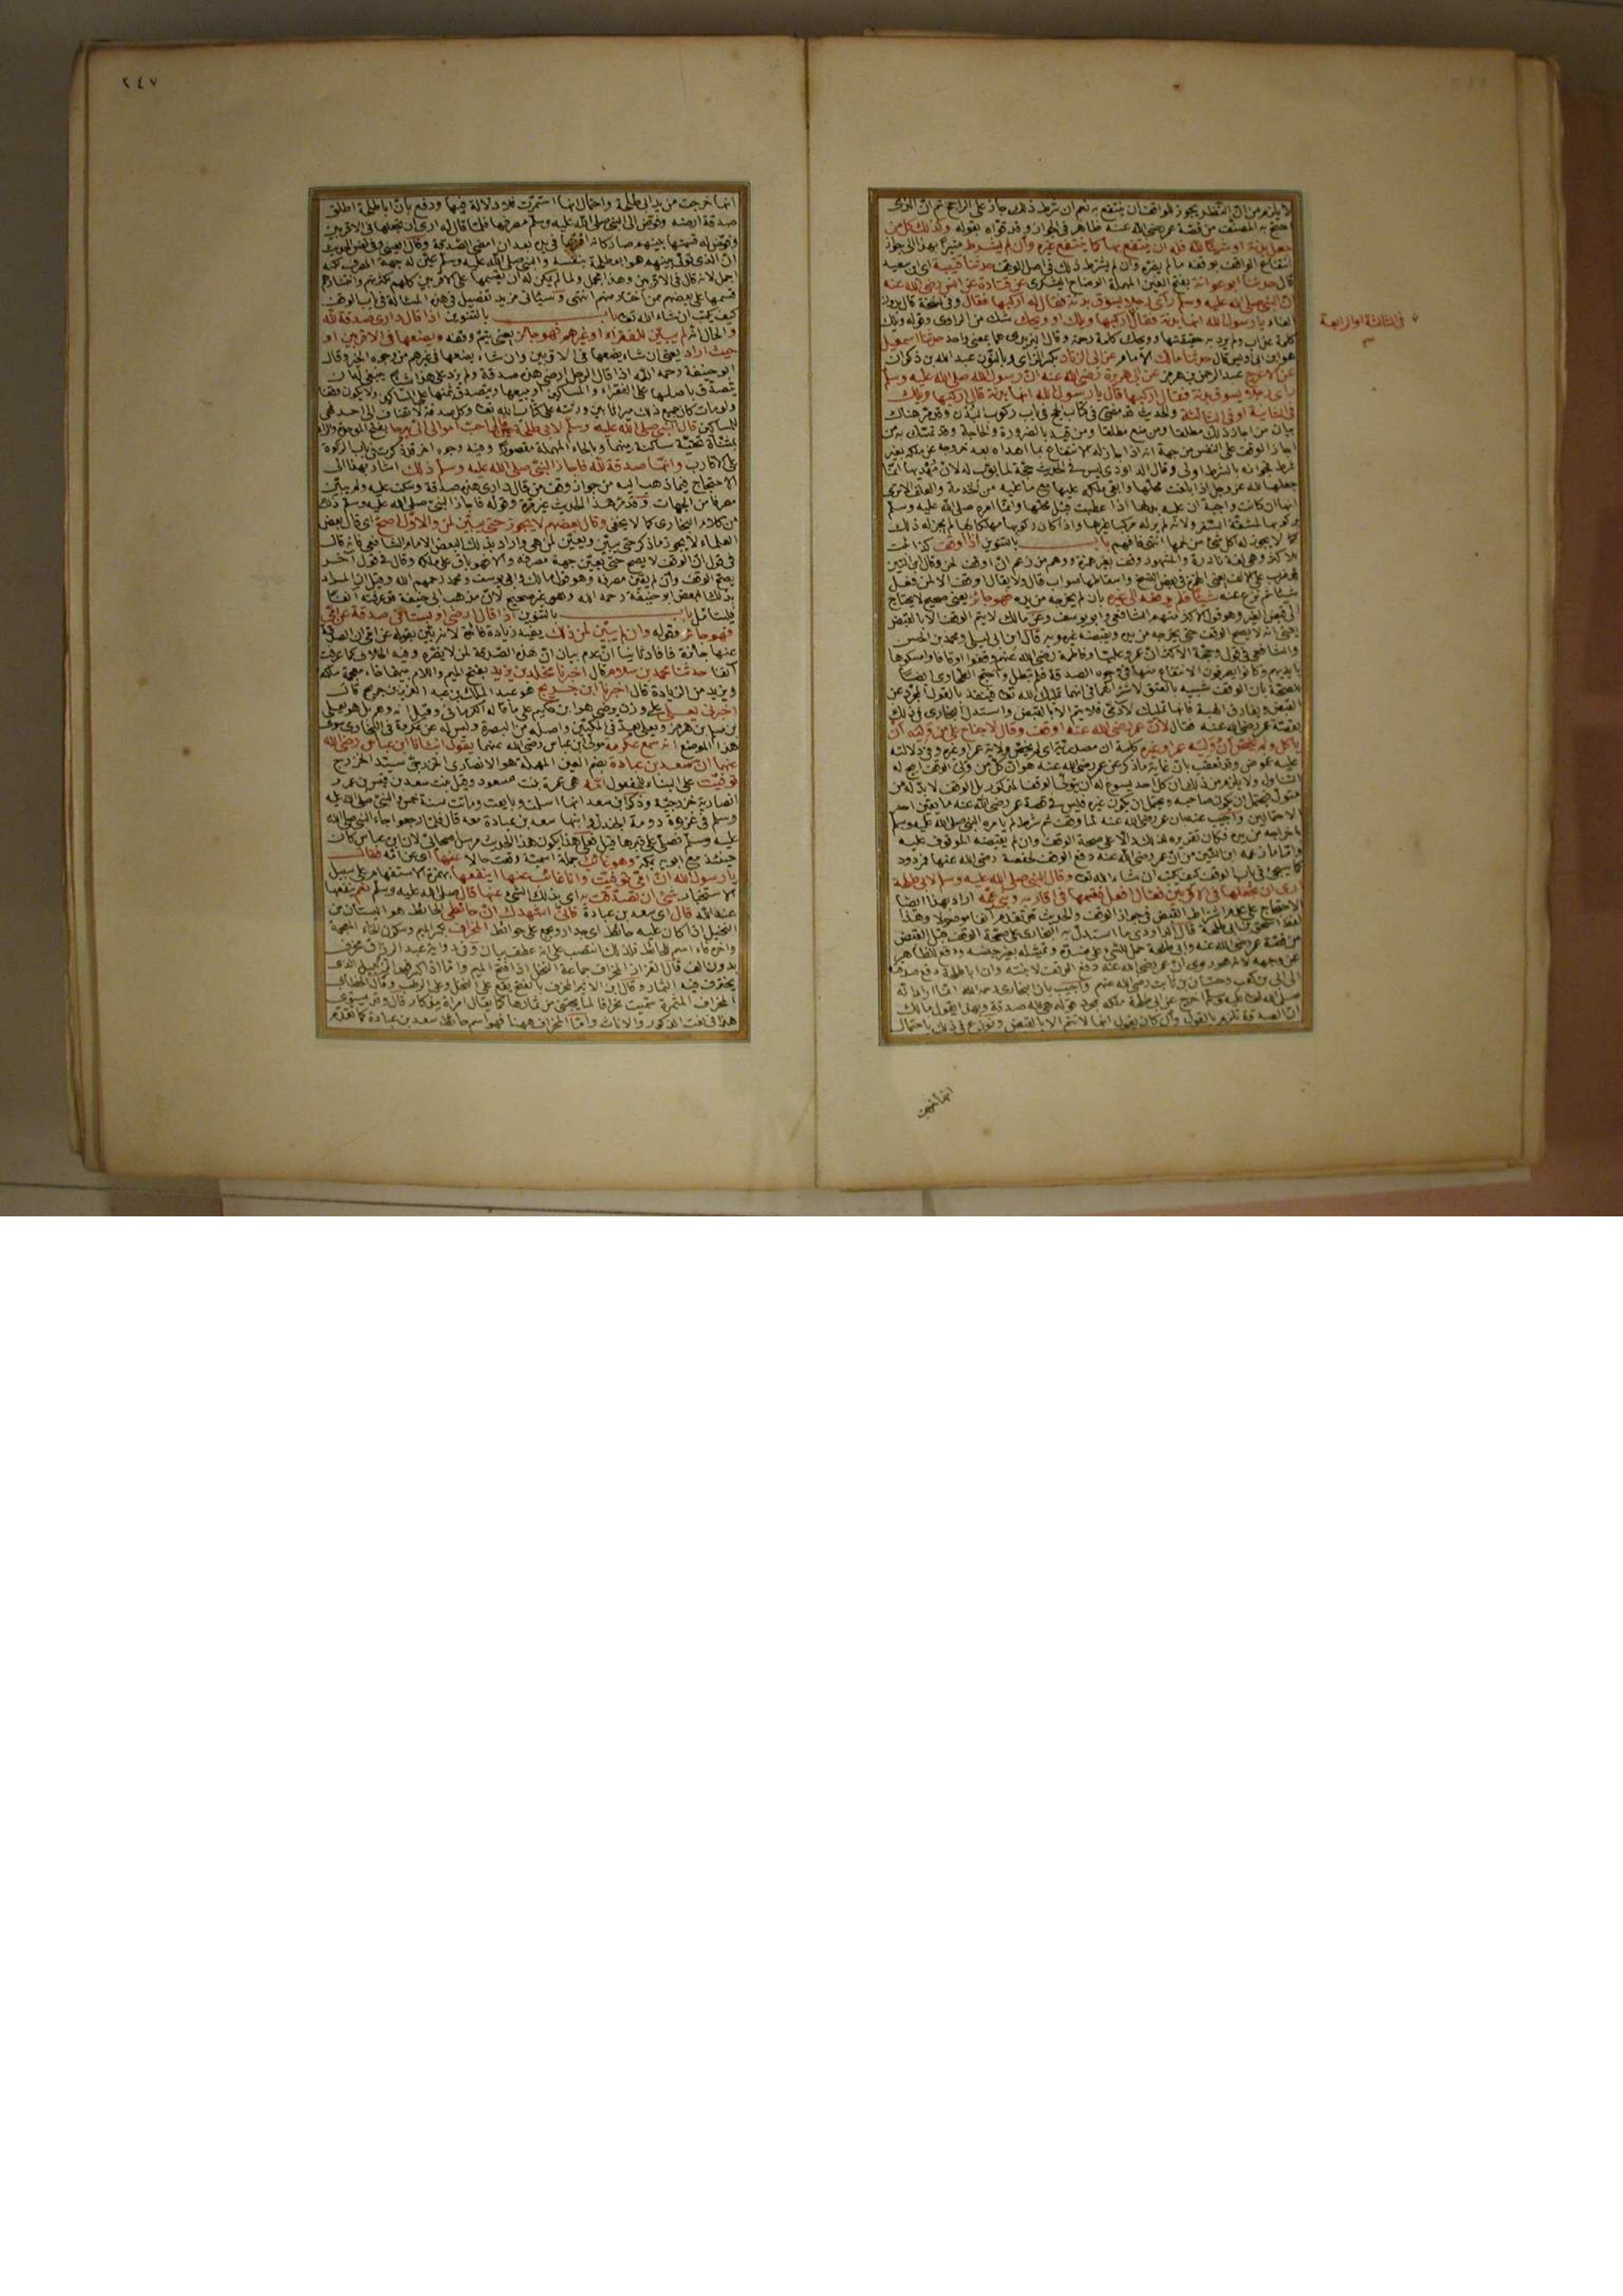 لا يلزم من النظر يجوز للواقف ان ينتفع به نعم ان شرط ذلك جاز على الراجح ثم ان الذي
احتج به المصنف من قصة عمر رضي الله عنه ظاهر في الجواز وقد قواه بقوله وكذلك كل من
جعل بدنة او شيئا لله فله ان ينتفع بها كما ينتفع غيره وان لم يشترط مشيرا بهذا الى جواز
انتفاع الواقف بوقفه ما لم يضره وان لم يشترط ذلك في اصل الوقف حدثنا قتيبة اي ابن سعيد
قال حدثنا ابو عوانة بفتح العين المهملة الوضاح اليشكري عن قتادة عن انس رضي الله عنه
ان النبي صلى الله عليه وسلم رأى رجلا يسوق بدنة فقال له اركبها فقال وفي نسخة قال بدون
الفاء يا رسول الله انها بدنة فقال اركبها ويلك او ويحك شك من الراوي وقوله ويلك
في الثالثة او الرابعة
كلمة عذاب ولم يرد به حقيقتها وويحك كلمة رحمة وقال اليزيدي هما بمعنى واحد حدثنا اسمعيل
هو ابن ابي اويس قال حدثنا مالك الامام عن ابي الزناد بكسر الزاي وبالنون عبد الله بن ذكوان
عن الاعرج عبد الرحمن بن هرمز عن ابي هريرة رضي الله عنه ان رسول الله صلى الله عليه وسلم
رأى رجلا يسوق بدنة فقال اركبها قال يا رسول الله انها بدنة قال اركبها ويلك
في الثانية او في الثالثة والحديث قد مضى في كتاب الحج في باب ركوب البدن وقد مر هناك
بيان من اجاز ذلك مطلقا ومن منع مطلقا ومن قيد بالضرورة والحاجة وقد تمسك به من
اجاز الوقف على النفس من جهة انه اذا جاز له الانتفاع بما اهداه بعد خروجه عن ملكه بغير
شرط فجوازه بالشرط اولى وقال الداودي ليس في الحديث حجة لما بوب له لان مهديها انما
جعلها لله عز وجل اذا بلغت محلها وابقى ملكه عليها مع ما عليه من الخدمة والعلف الا ترى
انها ان كانت واجبة ان عليه بدلها اذا عطبت قبل محلها وانما امره صلى الله عليه وسلم
بركوبها لمشقة السفر ولانه لم ير له مركبا غيرها واذا كان ركوبها مهلكا لها لم يجز له ذلك
كما لا يجوز له اكل شيء من لحمها انتهى فافهم باب بالتنوين اذا اوقف كذا ثبت
للاكثر وهي لغة نادرة والمشهور وقف بغير همزة
شيئا فلم يدفعه الى غيره بان لم يخرجه من يده فهو جائز يعني صحيح لا يحتاج
الى قبض الغير وهو قول الاكثر منهم الشافعي وابو يوسف وعن مالك لا يتم الوقف الا بالقبض
يعني انه لا يصح الوقف حتى يخرجه من يده ويقبضه غيره وبه قال ابن ابي ليلى ومحمد بن الحسن
والشافعي في قول وحجة الاكثر ان عمر وعليا وفاطمة رضي الله عنهم وقفوا اوقافا وامسكوها
بايديهم وكانوا يصرفون الانتفاع منها في وجوه الصدقة فلم تبطل واحتج الطحاوي ايضا
للصحة بان الوقف شبيه بالعتق لاشتراكهما في انهما تمليك لله تعالى فينفذ بالقول المجرد عن
القبض ويفارق الهبة فانها تمليك لآدمي فلا يتم الا بالقبض واستدل البخاري في ذلك
بقصة عمر رضي الله عنه فقال لان عمر رضي الله عنه اوقف وقال لا جناح على من وليه ان
يأكل ولم يخص ان وليه عمر او غيره
عليه
التناول ولا يلزم من ذلك ان كل احد يسوغ له ان يتولى الوقف المذكور بل الوقف لا بد له من
متول يحتمل ان يكون صاحبه ويحتمل ان يكون غيره فليس في قصة عمر رضي الله عنه ما يعين احد
الاحتمالين واجيب عنه بان عمر رضي الله عنه لما وقف ثم شرط لم يأمره النبي صلى الله عليه وسلم
باخراجه من يده فكان تقريره لذلك دالا على صحة الوقف وان لم يقبضه الموقوف عليه
واما ما زعمه ابن التين من ان عمر رضي الله عنه دفع الوقف لحفصة رضي الله عنها فمردود
كما سيجيء في باب الوقف كيف يكتب ان شاء الله تعالى وقال النبي صلى الله عليه وسلم لابي طلحة
ارى ان تجعلها في الاقربين فقال افعل فقسمها في اقاربه وبني عمه اراد بهذا ايضا
الاحتجاج على عدم اشتراط القبض في جواز الوقف والحديث قد تقدم آنفا موصولا وهذا
لفظ اسحق بن ابي طلحة قال الداودي ما استدل به البخاري على صحة الوقف قبل القبض
من قصة عمر رضي الله عنه وابي طلحة حمل الشيء على ضده وتمثيله بغير جنسه ودفع للظاهر
عن وجهه لانه هو روى ان عمر رضي الله عنه دفع الوقف لابنته وان ابا طلحة دفع صدقته
الى ابي بن كعب وحسان بن ثابت رضي الله عنهم واجيب بان البخاري رحمه الله انما اراد انه
صلى الله تعالى عليه وسلم اخرج عن ابي طلحة ملكه بمجرد قوله هي لله صدقة وبهذا يقول مالك
ان الصدقة تلزم بالقول وان كان يقول انها لا تتم الا بالقبض ونوزع في ذلك باحتمال
انها خرجت
٢٤٧
انها خرجت من يد ابي طلحة واحتمال انها استمرت فلا دلالة فيها ودفع بان ابا طلحة اطلق
صدقة ارضه وفوض الى النبي صلى الله عليه وسلم مصرفها فلما قال له ارى ان تجعلها في الاقربين
وفوض له قسمتها بينهم صار كأنه اقرها في يده بعد ان امضى الصدقة وقال العيني وفي نفس الحديث
ان الذي تولى بينهم هو ابو طلحة بنفسه والنبي صلى الله عليه وسلم عين له جهة المصرف لكنه
اجمل لانه قال في الاقربين وهذا مجمل ولما لم يمكن له ان يقسمها على الاقربين كلهم لكثرتهم وانتشارهم
قسمها على بعضهم ممن اختاره منهم انتهى وسيأتي مزيد تفصيل في هذه المسألة في باب الوقف
كيف يكتب ان شاء الله تعالى باب بالتنوين اذا قال داري صدقة لله
والحال انه لم يبين للفقراء او غيرهم فهو جائز يعني يتم وقفه ويضعها في الاقربين او
حيث اراد يعني ان شاء يضعها في الاقربين وان شاء يضعها في غيرهم من وجوه الخير وقال
ابو حنيفة رحمه الله اذا قال الرجل ارضي هذه صدقة ولم يزد على هذا شيئا ينبغي له ان
يتصدق باصلها على الفقراء والمساكين او يبيعها ويتصدق بثمنها على المساكين ولا يكون وقفا
ولو مات كان جميع ذلك ميراثا بين ورثته على كتاب الله تعالى وكل صدقة لا تضاف الى احد فهي
للمساكين قال النبي صلى الله عليه وسلم لابي طلحة حين قال احب اموالي الي بيرحا بفتح الموحدة والراء
بمثناة تحتية ساكنة بينهما وبالحاء المهملة مقصورا وفيه وجوه اخر قد ذكرت في باب الزكوة
على الاقارب وانها صدقة لله فاجاز النبي صلى الله عليه وسلم ذلك اشار بهذا الى
الاحتجاج فيما ذهب اليه من جواز وقف من قال داري هذه صدقة وسكت عليه ولم يبين
مصرفا من الجهات وقد مر هذا الحديث غير مرة وقوله فاجاز النبي صلى الله عليه وسلم ذلك
من كلام البخاري كما لا يخفى وقال بعضهم لا يجوز حتى يبين لمن والاول اصح اي قال بعض
العلماء لا يجوز ما ذكر حتى يبين ويعين لمن هي واراد بذلك البعض الامام الشافعي فانه قال
في قول ان الوقف لا يصح حتى يعين جهة مصرفه والا فهو باق على ملكه وقال في قول آخر
يصح الوقف وان لم يعين مصرفه وهو قول مالك وابي يوسف ومحمد رحمهم الله وقيل ان المراد
بذلك البعض ابو حنيفة رحمه الله وهو غير صحيح لان مذهب ابي حنيفة قد عرفته آنفا
فليتأمل باب بالتنوين اذا قال ارضي او بستاني صدقة عن امي
فهو جائز وقوله وان لم يبين لمن ذلك يفيد زيادة فائدة لانه بين بقوله عن امي ان الصدقة
عنها جائزة فافاد ثانيا ان عدم بيان ان هذه الصدقة لمن لا يضره وفيه الخلاف كما عرفت
آنفا حدثنا محمد بن سلام قال اخبرنا مخلد بن يزيد بفتح الميم واللام بينهما خاء معجمة ساكنة
ويزيد من الزيادة قال اخبرنا ابن جريج هو عبد الملك بن عبد العزيز بن جريج قال
اخبرني يعلى على وزن يرضى هو ابن حكيم على ما قاله الكرماني وقيل انه وهم بل هو يعلى
بن مسلم بن هرمز ويعلى يعد في المكيين واصله من البصرة وليس له عن عكرمة في البخاري سوى
هذا الموضع انه سمع عكرمة مولى ابن عباس رضي الله عنهما يقول انبأنا ابن عباس رضي الله
عنهما ان سعد بن عبادة بضم العين المهملة هو الانصاري الخزرجي سيد الخزرج
توفيت على البناء للمفعول امه هي عمرة بنت مسعود وقيل بنت سعد بن قيس بن عمرو
انصارية خزرجية وذكر ابن سعد انها اسلمت وبايعت وماتت سنة خمس والنبي صلى الله عليه
وسلم في غزوة دومة الجندل وابنها سعد بن عبادة معه قال فلما رجعوا جاء النبي صلى الله
عليه وسلم فصلى على قبرها قيل فعلى هذا يكون هذا الحديث مرسل صحابي لان ابن عباس كان
حينئذ مع ابويه بمكة وهو غائب جملة اسمية وقعت حالا عنها اي عن امه فقال
يا رسول الله ان امي توفيت وانا غائب عنها اينفعها بهمزة الاستفهام على سبيل
الاستخبار شيء ان تصدقت به اي بذلك الشيء عنها قال صلى الله عليه وسلم نعم ينفعها
عند الله قال اي سعد بن عبادة فاني اشهدك ان حائطي الحائط هو البستان من
النخيل اذا كان عليه حائط اي جدار ويجمع على حوائط المخراف بكسر الميم وسكون الخاء المعجمة
وآخره فاء اسم للحائط فلذلك انتصب على انه عطف بيان وفي رواية عبد الرزاق مخرف
بدون الف قال القزاز المخراف جماعة النخل اذا فتح الميم واما اذا كسر فهو الزنبيل الذي
يخترف فيه الثمار وقال ابن الاثير المخرف بالفتح يقع على النخل وعلى الرطب وقال الخطابي
المخراف المثمرة سميت مخرافا لما يجتنى من ثمارها كما يقال امرأة مذكار قال وقد يستوي
هذا في نعت الذكور والاناث واما المخراف ههنا فهو اسم حائط سعد بن عبادة كما تقدم